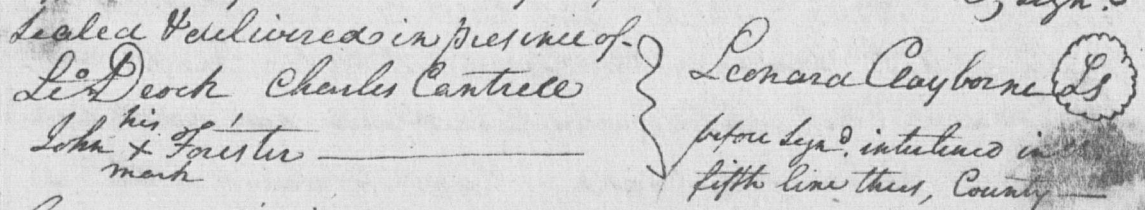 Sealed & delivered in presence of
Leo Deock Charles Cantrell
John his x mark Forister
Leonard Clayborne Ls
before Sign'd. interlined in
fifth line thus, County